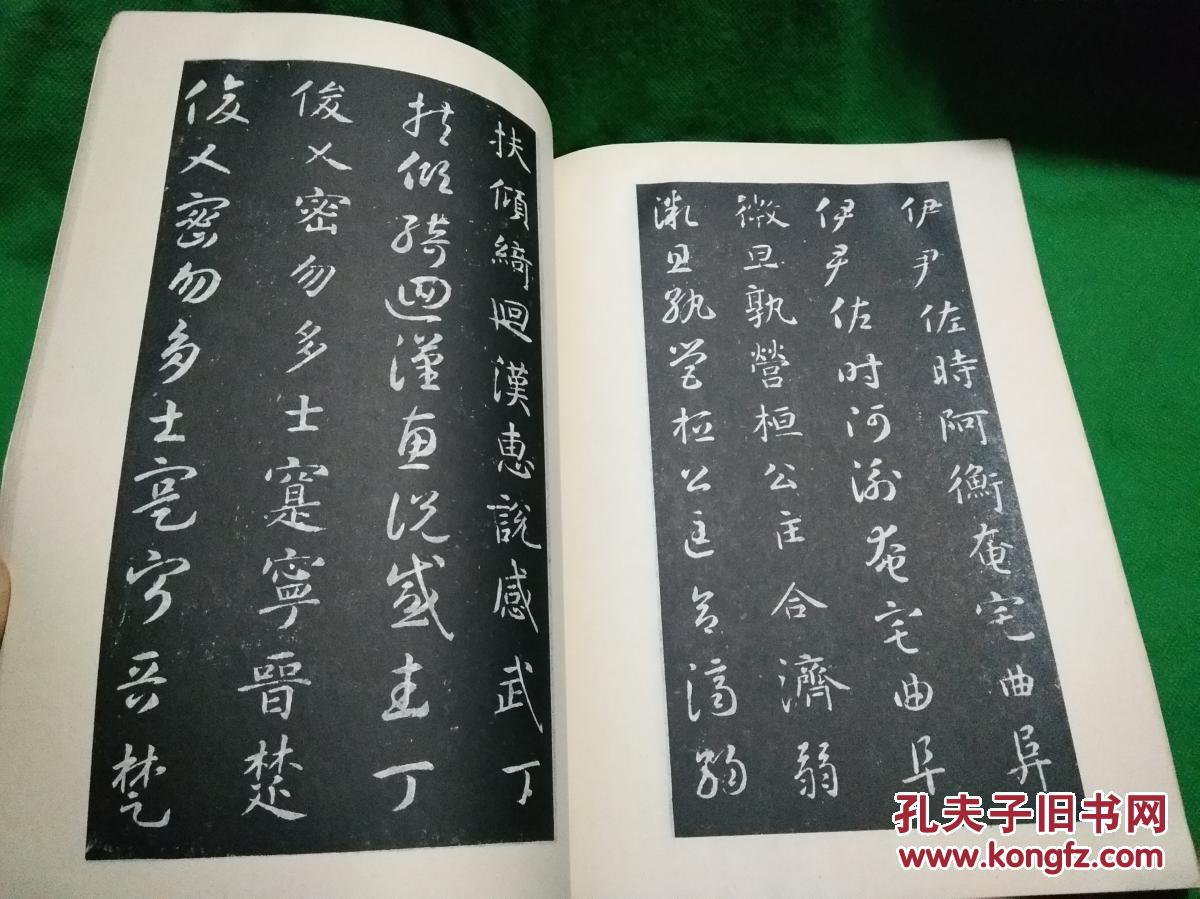 伊尹佐時阿衡奄宅曲阜
伊尹佐时阿衡奄宅曲阜
微旦孰營桓公匡合濟弱
微旦孰營桓公匡合濟弱
扶傾綺迴漢惠說感武丁
扶傾綺迴漢惠說感武丁
俊乂密勿多士寔寧晉楚
俊乂密勿多士寔寧晉楚
孔夫子旧书网
www.kongfz.com